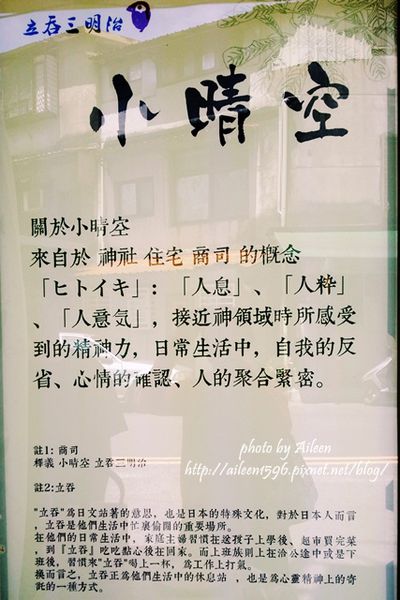 立吞三明治
小晴空
關於小晴空
來自於 神社 住宅 商司 的概念
「ヒトイキ」：「人息」、「人粋」
、「人意気」，接近神領域時所感受
到的精神力，日常生活中，自我的反
省、心情的確認、人的聚合緊密。
photo by Aileen
http://aileen1596.pixnet.net/blog/
註1: 商司
釋義 小晴空 立吞三明治
註2:立吞
"立吞"為日文站著的意思，也是日本的特殊文化，對於日本人而言
，立吞是他們生活中忙裏偷閒的重要場所。
在他們的日常生活中，家庭主婦習慣在送孩子上學後、超市買完菜
，到『立吞』吃吃點心後在回家。而上班族則上在洽公途中或是下
班後，習慣來"立吞"喝上一杯，為工作上打氣。
換而言之，立吞正為他們生活中的休息站 ，也是為心靈精神上的寄
託的一種方式。